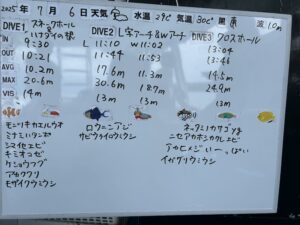 2025年 7月 6日 天気 水温 29℃ 気温 30℃ 風 南 波 1.0m
DIVE1 スネークホール
DIVE2 L宮アーチ&Wアーチ
DIVE3 クロスホール
IN 9:30 L 11:10 W 11:02 13:04
OUT 10:21 11:44 13:46
AVG 10.2m 17.6m 11.3m 14.5m
MAX 20.6m 30.6m 18.7m 24.9m
VIS 14m 13m 13m 13m
モンツキカエルウオ
ミナミハタンポ
シマイセエビ
キミオコゼ
ケショウフグ
アカククリ
モザイクウミウシ
ロウニンアジ
サビウライロウミウシ
ニセアカホシカクレエビ
アカヒメジいーっぱい
イガグリウミウシ